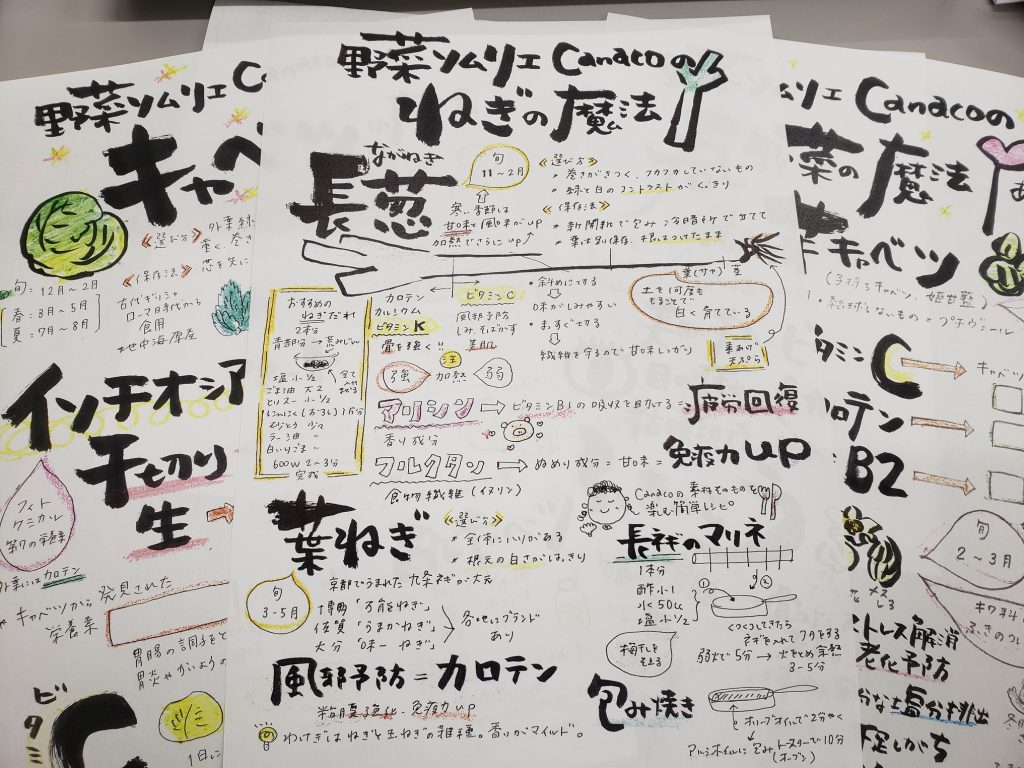 野菜ソムリエ Canacoの
ねぎの魔法
ながねぎ
長葱
旬
11～2月
寒い季節は
甘味と風味がUP
加熱でさらにUP
《選び方》
・巻きがきつく、フカフカしていないもの
・緑と白のコントラストがくっきり
《保存法》
・新聞紙で包み冷暗所で立てて
・葉は別保存. 根はつけたまま
葉(サヤ) 茎
土を何度も
もることで
白く育てている
素あげ
天ぷら
おすすめの
ねぎだれ
2本分
青部分→荒みじん
塩小1/2
ごま油 大2
とりスー 小1/2
にんにく(おろし)1片分
白いりごま
600W 2～3分
完成
カロテン
カルシウム
ビタミンK
骨を強く!!
ビタミンC
風邪予防
しみ、そばかす
美肌
注
強 加熱 弱
・斜めにきる
味がしみやすい
・まっすぐきる
繊維を守るので甘味しっかり
アリシン→ビタミンB1の吸収を助ける=疲労回復
香り成分
フルクタン→ぬめり成分=甘味=免疫力UP
食物繊維(イヌリン)
葉ねぎ
《選び方》
・全体にハリがある
・根元の白さがはっきり
旬
3-5月
京都でうまれた九条ネギが大元
博多「万能ねぎ」
佐賀「うまかねぎ」
大分「味一ねぎ」
各地にブランド
あり
風邪予防=カロテン
粘膜強化. 免疫力UP
わけぎはねぎと玉ねぎの雑種。香りがマイルド。
Canacoの素材そのものを
楽む簡単レシピ
長ネギのマリネ
1本分
酢小1
水50cc
塩小1/2
梅干しを
ぐつぐつしてきたら
ネギを入れてフタをする
弱火で5分→火をとめ余熱
3-5分
包み焼き
オリーブオイルで2分やく
アルミホイルに包みトースターで10分
(オーブン)
野菜ソムリエ C
キャベ
《選び方》
外葉緑
《保存法》
芯を先に
旬:12月～2月
春:3月～5月
夏:7月～8月
古代ギリシャ
ローマ時代から
食用
地中海原産
イソチオシア
千切り
生
フィト
ケミカル
第7の栄養素
外葉にはカロテン
キャベツから発見された
栄養素
胃腸の調子をと
胃炎やかいようの
ビタミ
C
1日に
ムリエ Canacoの
菜の魔法
キャベツ
(子持ちキャベツ、姫甘藍)
・結球しないもの=プチヴェール
タミンC
キャベツ
ロテン
B2
旬
2～3月
ふきのとう
トレス解消
老化予防
分な塩分排出
不足しがち